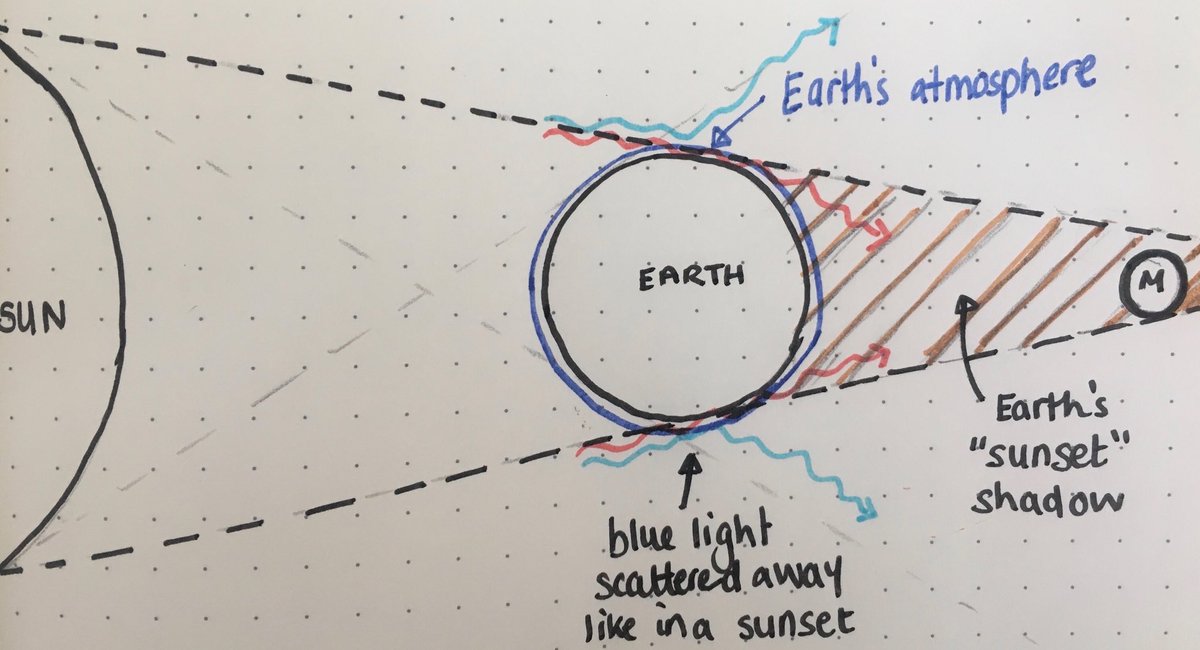 Earth's atmosphere
SUN
EARTH
M
Earth's
"sunset"
shadow
blue light
scattered away
like in a sunset